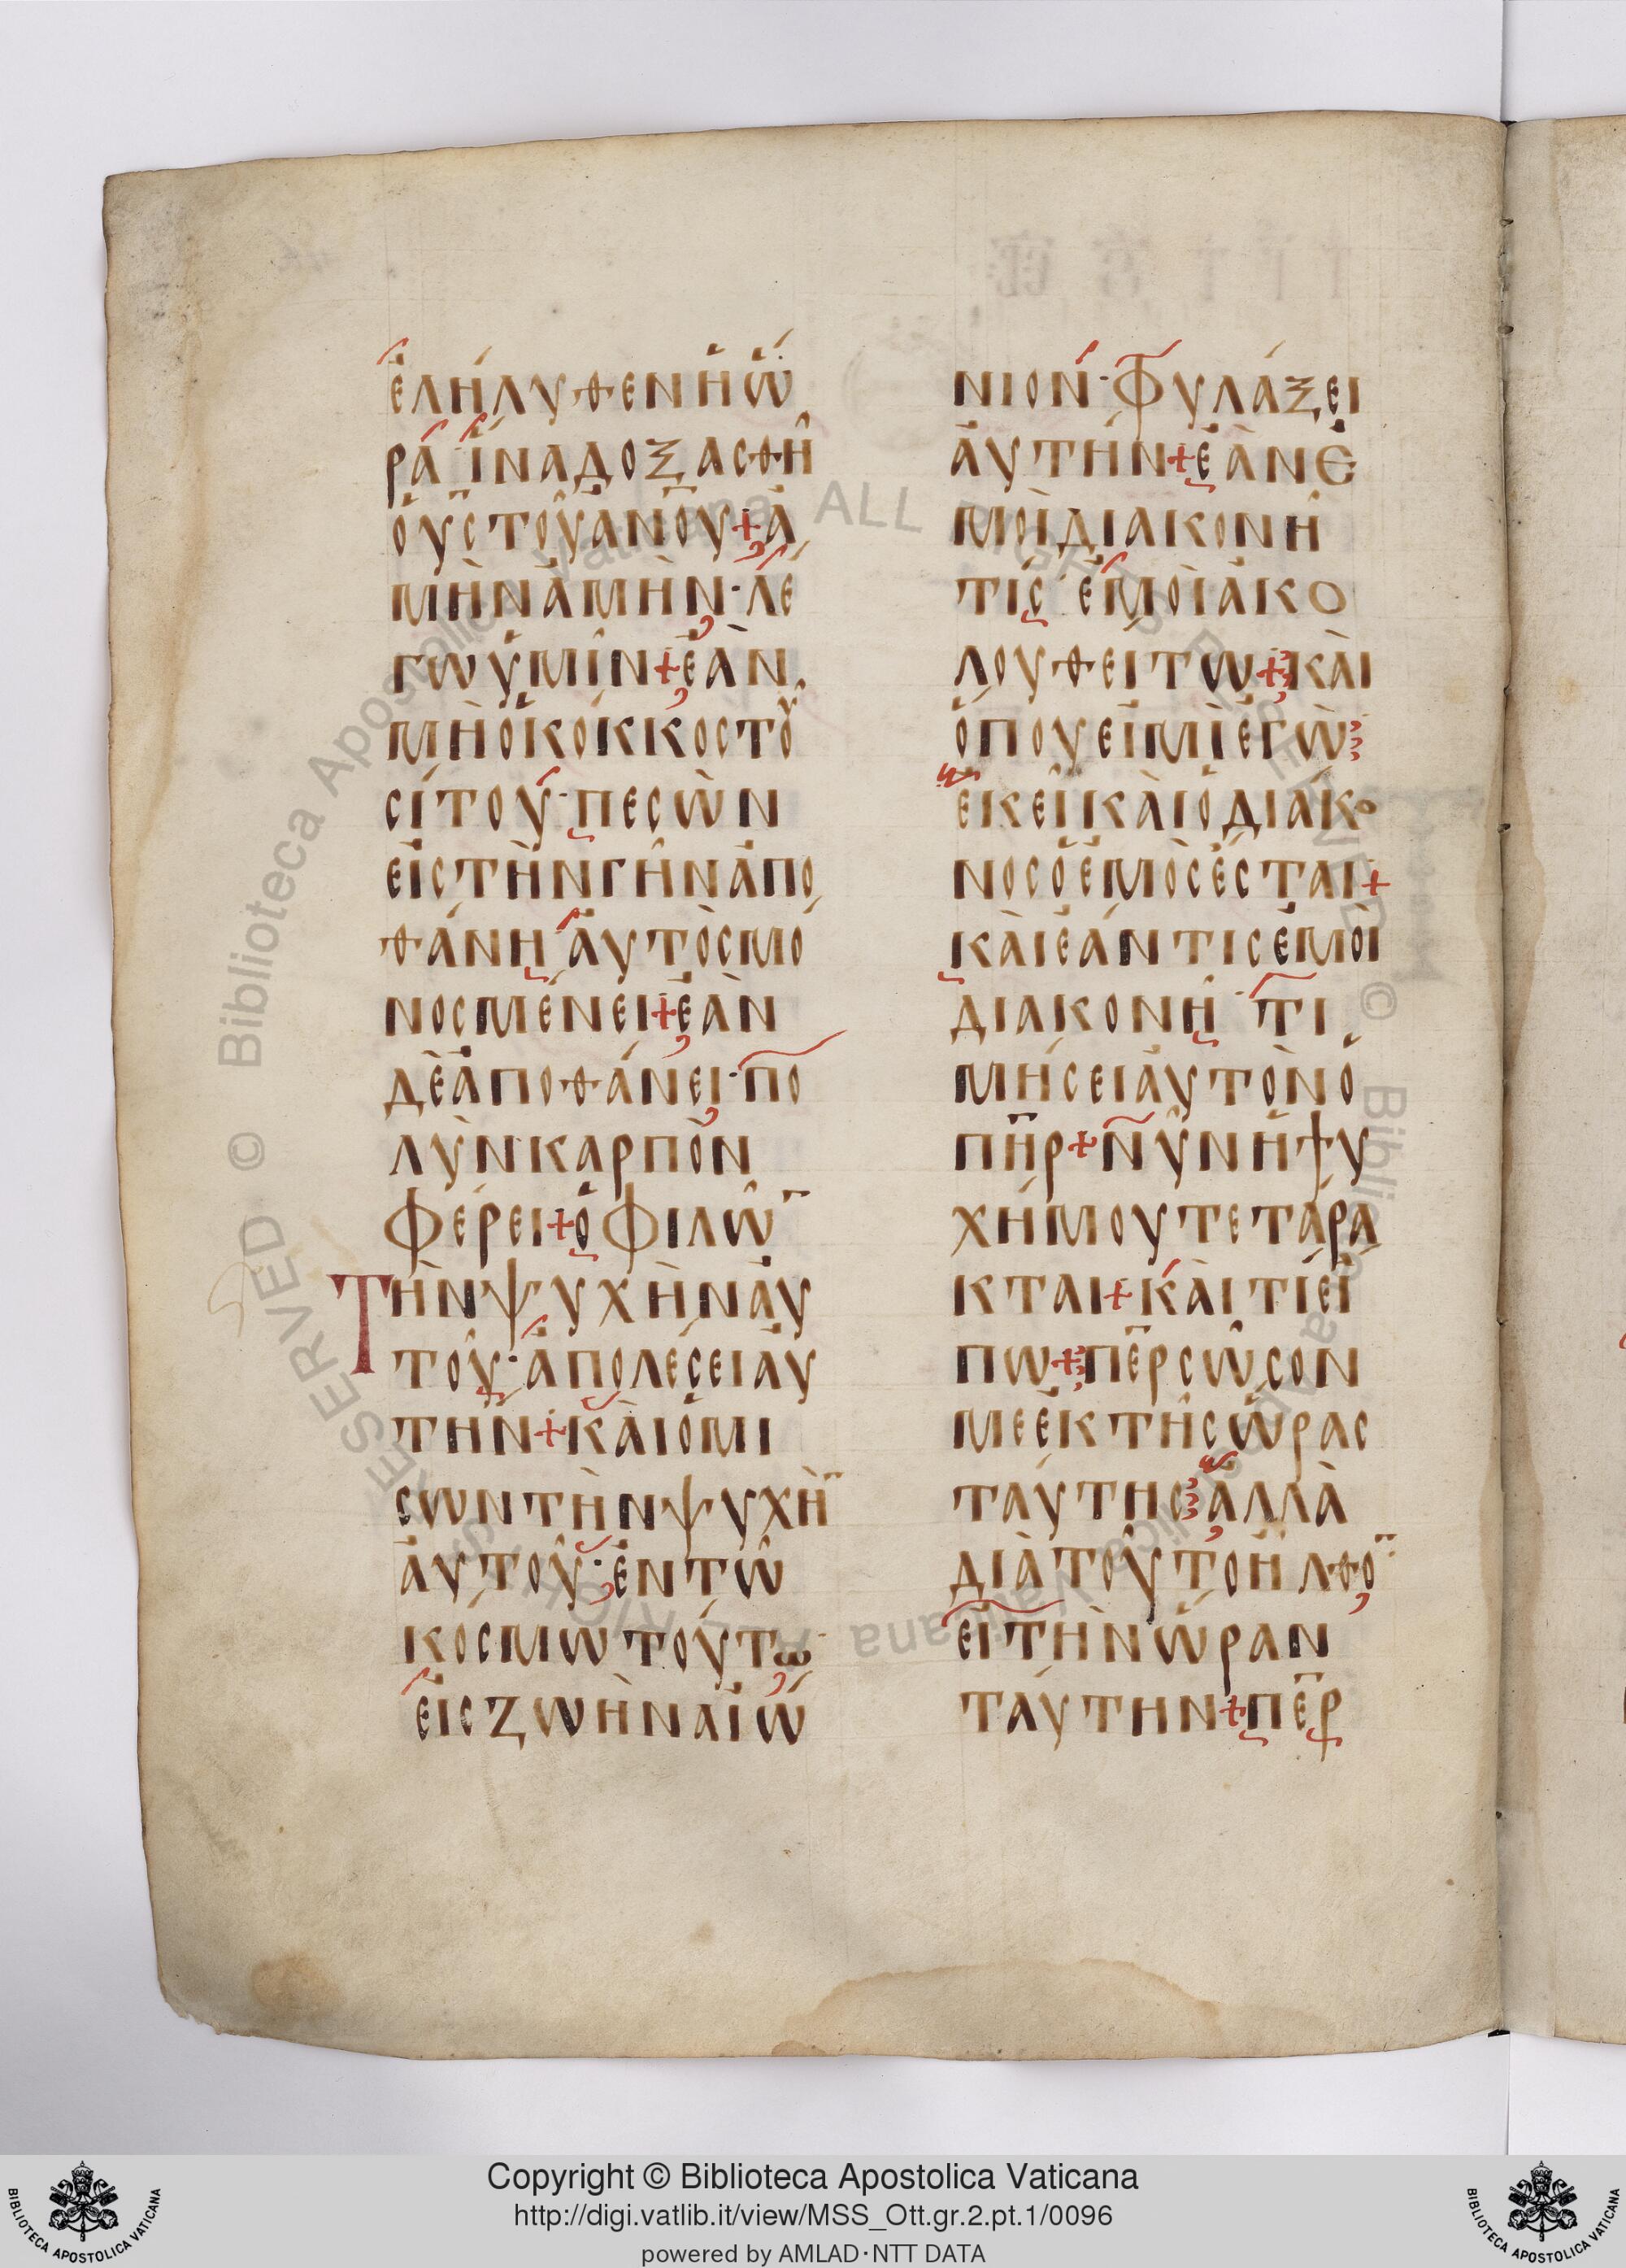 ἐλήλυθεν ἡ ὥ
ρα ἵνα δοξασθῆ
ὁ υ̅ς τοῦ ἀν̅ου + ἀ
μὴν ἀμὴν · λέ
γω ὑμῖν + ἐὰν
μὴ ὁ κόκκος τοῦ
σίτου · πεσὼν
εἰς τὴν γῆν ἀπο
θάνη αὐτὸς μό
νος μένει + ἐὰν
δὲ ἀποθάνει · πο
λὺν καρπὸν
φέρει + ὁ φιλῶ̅
Τὴν ψυχὴν αὐ
τοῦ · ἀπολέσει αὐ
τὴν + καὶ ὁ μι
σων τὴν ψυχὴ̅
αὐτοῦ · ἐν τῶ
κόσμω τούτω
εἰς ζωὴν αἰώ
νιον · φυλάξει
αὐτήν + ἐὰν ἐ
μοὶ διακονῆ
τίς ἐμοὶ ἀκο
λουθείτω + καὶ
ὅπου εἰμὶ ἐγὼ
ἐκεῖ καὶ ὁ διάκο
νος ὁ ἐμὸς ἔσται +
καὶ ἐάν τις ἐμοὶ
διακονῆ · τι
μήσει αὐτὸν ὁ
π̅η̅ρ + νῦν ἡ ψυ
χή μου τετάρα
κται + καὶ τί εἴ
πω + π̅ερ σῶσον
με ἐκ τῆς ὥρας
ταύτης ἀλλὰ
διὰ τοῦτο ἦλθο̅
εἰ τὴν ὥραν
ταύτην + π̅ερ
Biblioteca Apostolica Vaticana ALL RIGHTS RESERVED © Biblioteca Apostolica Vaticana ALL RIGHTS RESERVED ©
Copyright © Biblioteca Apostolica Vaticana
http://digi.vatlib.it/view/MSS_Ott.gr.2.pt.1/0096
powered by AMLAD·NTT DATA
BIBLIOTECA APOSTOLICA VATICANA
BIBLIOTECA APOSTOLICA VATICANA